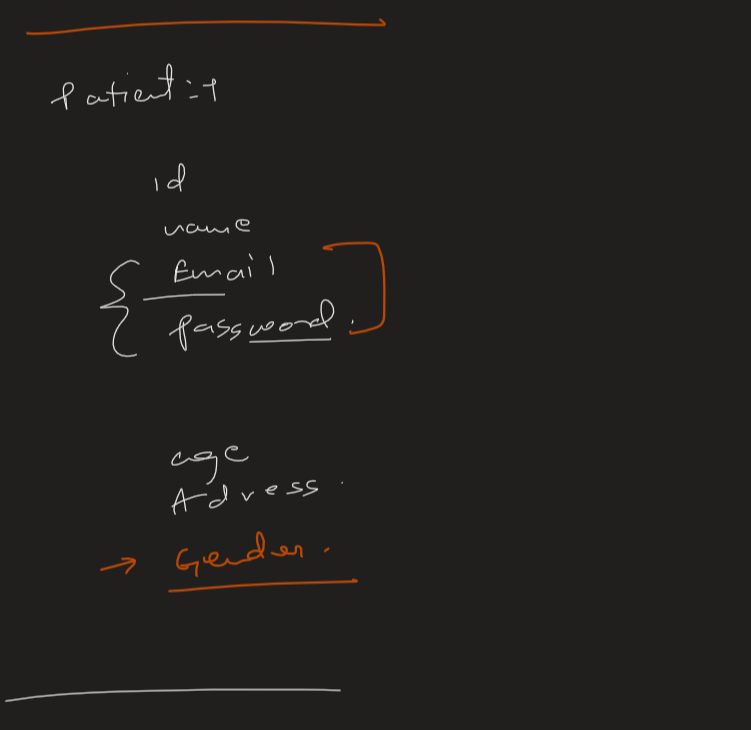 Patient :-
id
name
Email
password.
age
Adress.
Gender.